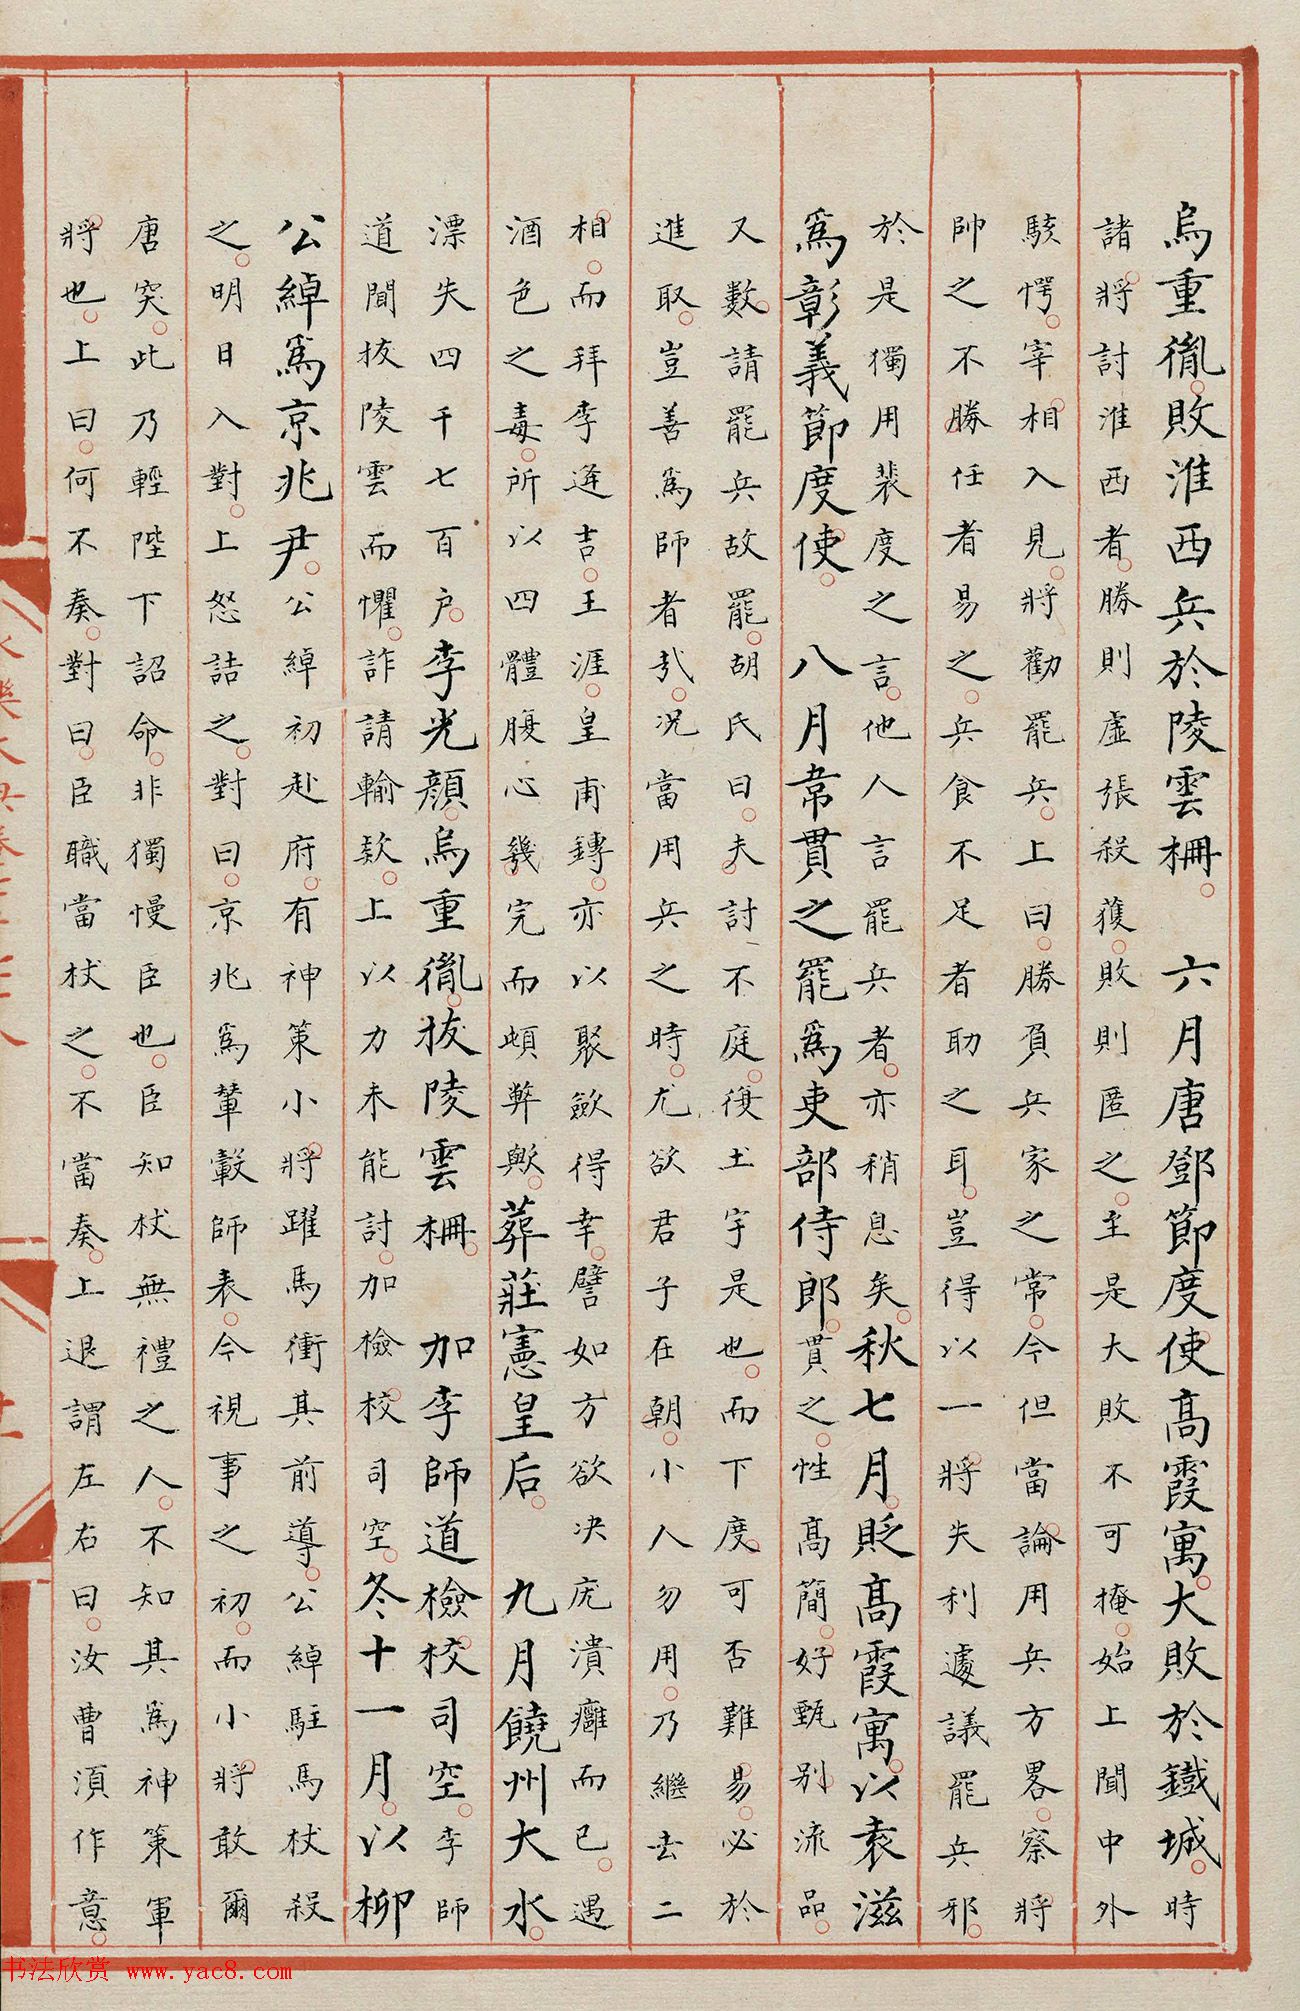 烏重胤敗淮西兵於陵雲柵　六月唐鄧節度使高霞寓大敗於鐵城時
諸將討淮西者勝則虛張殺獲敗則匿之至是大敗不可掩始上聞中外
駭愕宰相入見將勸罷兵上曰勝負兵家之常今但當論用兵方畧察將
帥之不勝任者易之兵食不足者助之耳豈得以一將失利遽議罷兵邪
於是獨用裴度之言他人言罷兵者亦稍息矣秋七月貶高霞寓以袁滋
爲彰義節度使　八月韋貫之罷爲吏部侍郎貫之性高簡好甄別流品
又數請罷兵故罷胡氏曰夫討不庭復土宇是也而下度可否難易必於
進取豈善爲師者哉况當用兵之時尤欲君子在朝小人勿用乃繼去二
相而拜李逢吉王涯皇甫鏄亦以聚歛得幸譬如方欲决疣潰癰而已遇
酒色之毒所以四體腹心幾完而頓弊歟葬莊憲皇后　九月饒州大水
漂失四千七百户李光顏烏重胤拔陵雲柵　加李師道檢校司空李師
道聞拔陵雲而懼詐請輸款上以力未能討加檢校司空冬十一月以柳
公綽爲京兆尹公綽初赴府有神策小將躍馬衝其前導公綽駐馬杖殺
之明日入對上怒詰之對曰京兆爲輦轂師表今視事之初而小將敢爾
唐突此乃輕陛下詔命非獨慢臣也臣知杖無禮之人不知其爲神策軍
將也上曰何不奏對曰臣職當杖之不當奏上退謂左右曰汝曹須作意
书法欣赏 www.yac8.com